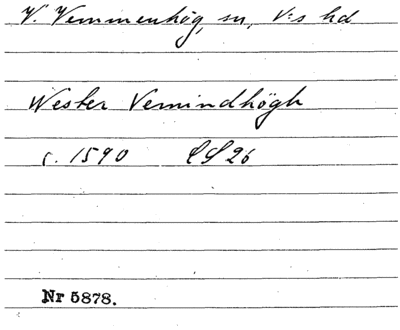 V. Vemmenhög, sn, V:s hd
Wester Vemindhögh
c. 1590 LS 26
Nr 5878.